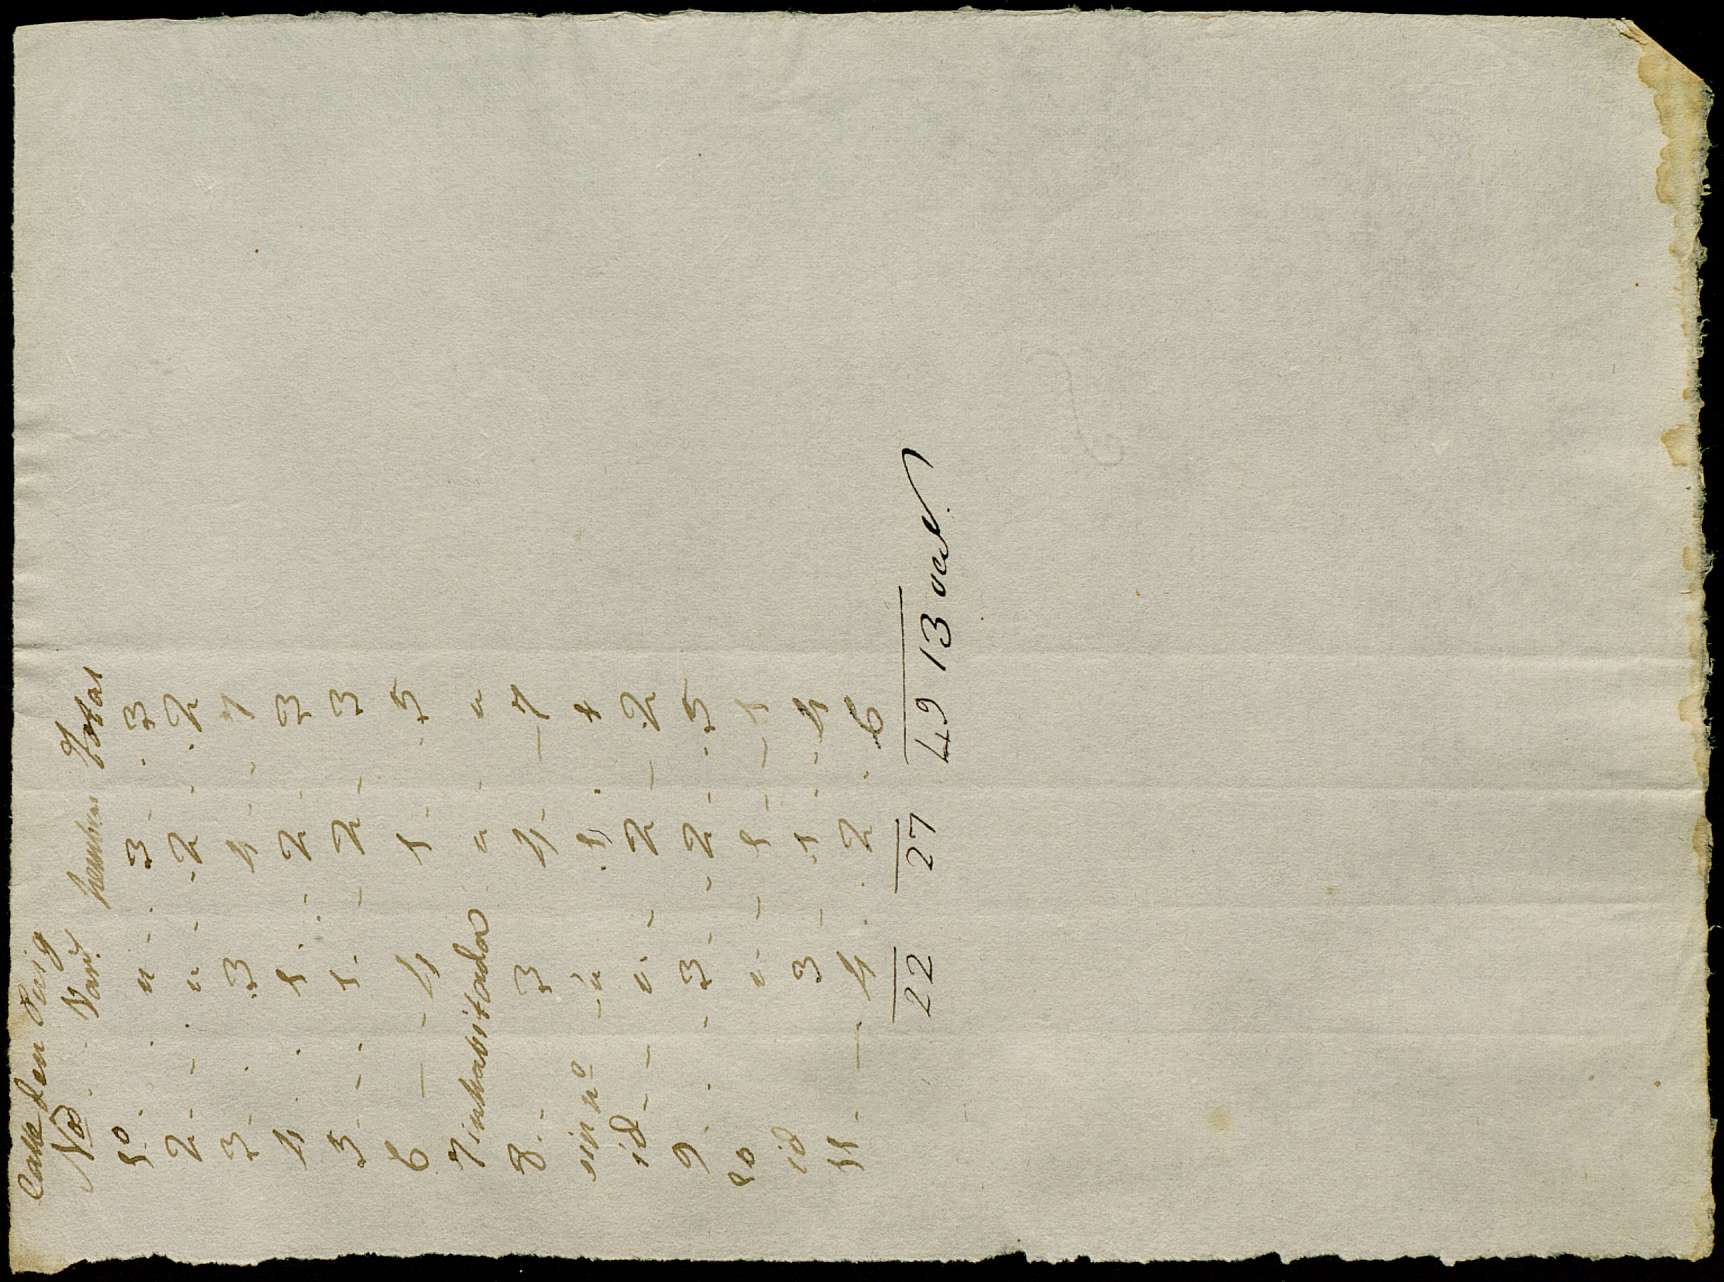 Calle den Puig
Nos Vars. hembras Total
1º " 3 3
2 " 2 2
3 3 4 7
4 1 2 3
5 1 2 3
6 4 1 5
7 inhabitada " "
8 3 4 7
sin nº " 1 1
id " 2 2
9 3 2 5
10 " 1 1
id 3 1 4
11 4 2 6
22 27 49 13 vecs.